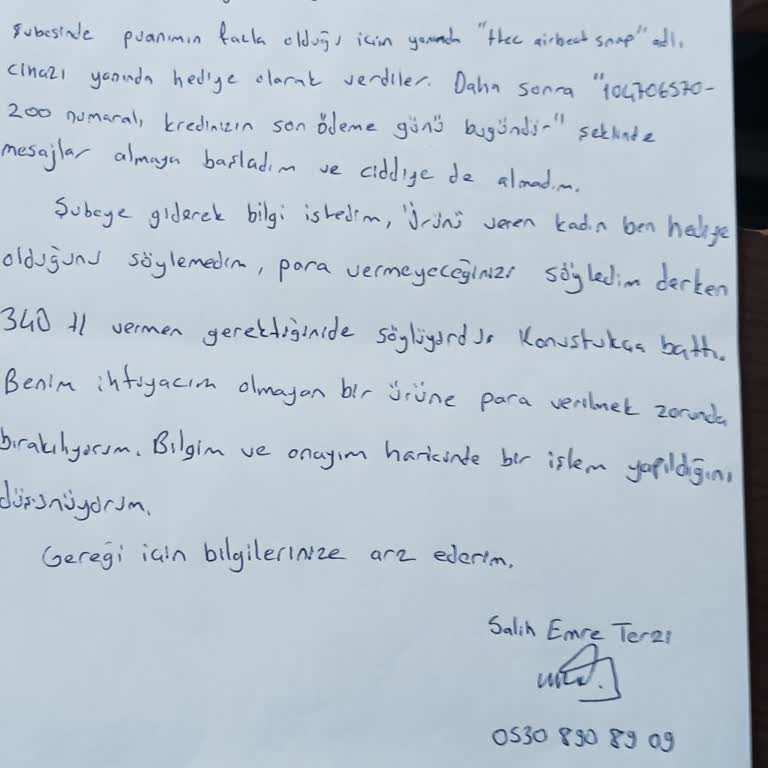 şubesinde puanımın fazla olduğu için yanında "ttec airbeat snap" adlı
cihazı yanında hediye olarak verdiler. Daha sonra "104706570-
200 numaralı kredinizin son ödeme günü bugündür" şeklinde
mesajlar almaya başladım ve ciddiye de almadım.
Şubeye giderek bilgi istedim, Ürünü veren kadın ben hediye
olduğunu söylemedim, para vermeyeceğinizi söyledim derken
340 tl vermen gerektiğinide söylüyordu. Konuştukça battı.
Benim ihtiyacım olmayan bir ürüne para verilmek zorunda
bırakılıyorum. Bilgim ve onayım haricinde bir işlem yapıldığını
düşünüyorum.
Gereği için bilgilerinize arz ederim.
Salih Emre Terzi
0530 890 89 09